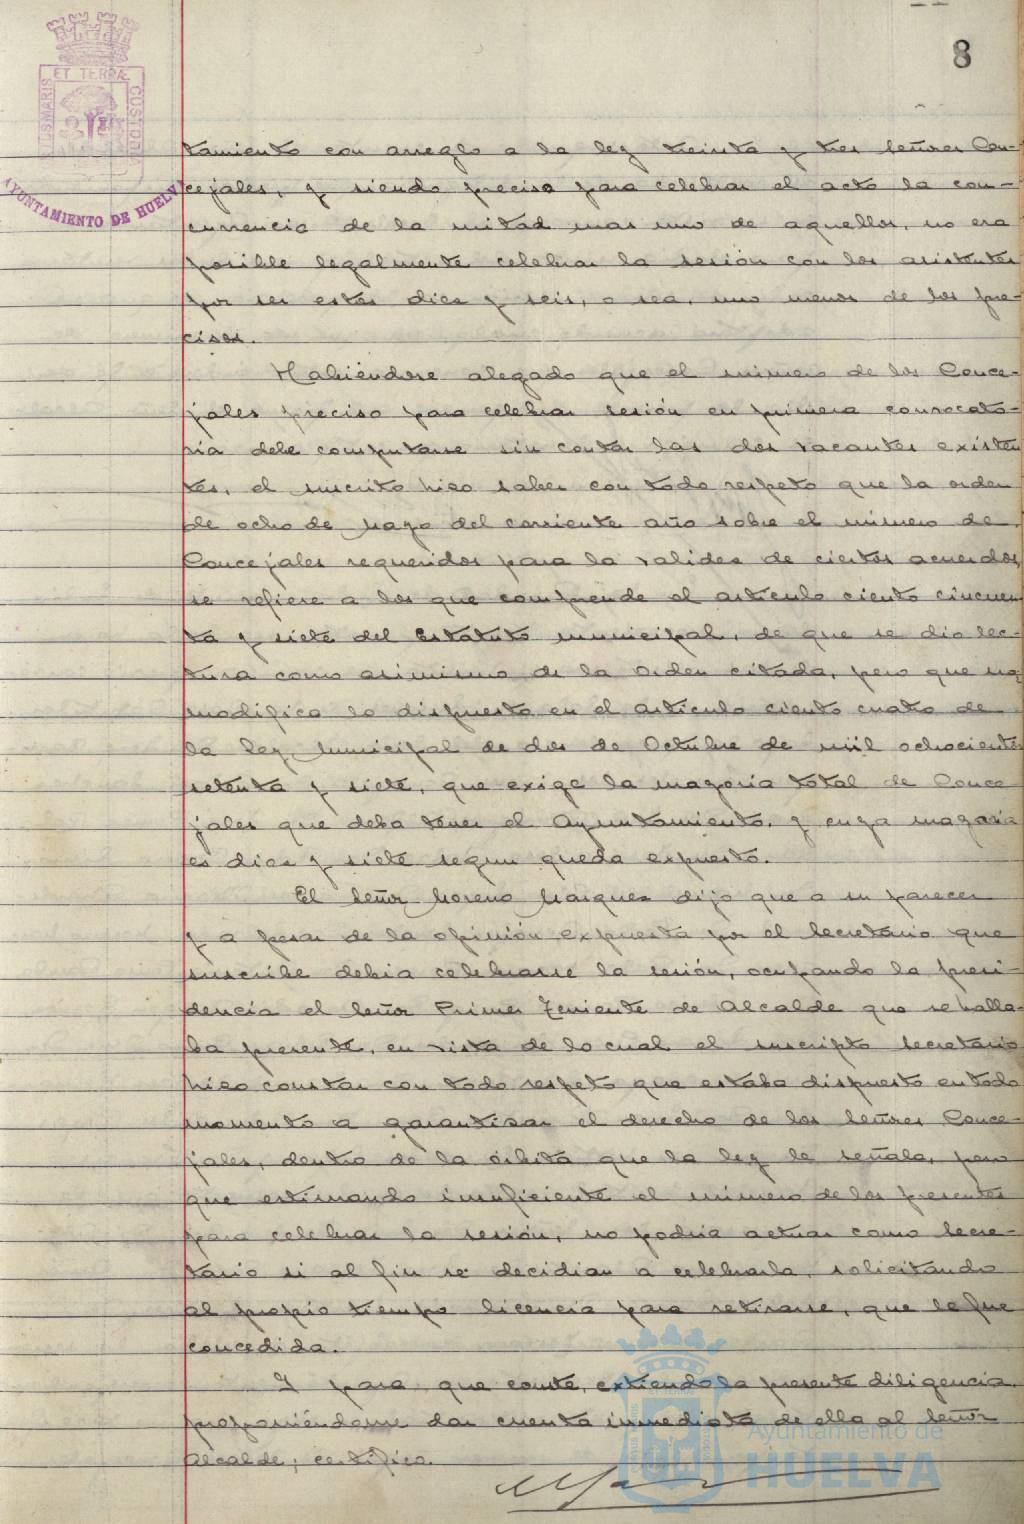 8
ET TERRÆ
CUSTODIA
AYUNTAMIENTO DE HUELVA
tamiento con arreglo a la ley treinta y tres Señores Con-
cejales, y siendo preciso para celebrar el acto la con-
currencia de la mitad mas uno de aquellos, no era
posible legalmente celebrar la sesión con los asistentes
por ser estos diez y seis, o sea, uno menos de los pre-
cisos.
Habiéndose alegado que el número de los Conce-
jales preciso para celebrar sesión en primera convocato-
ria debe computarse sin contar las dos vacantes existen
tes, el suscrito hizo saber con todo respeto que la orden
de ocho de Mayo del corriente año sobre el número de
Concejales requeridos para la validez de ciertos acuerdos
se refiere a los que comprende el artículo ciento cincuen
ta y siete del Estatuto municipal, de que se dio lec-
tura como asimismo de la orden citada, pero que no
modifica lo dispuesto en el artículo ciento cuatro de
la ley Municipal de dos de Octubre de mil ochocientos
setenta y siete, que exige la mayoria total de Conce
jales que deba tener el Ayuntamiento, y cuya mayoria
es diez y siete segun queda expuesto.
El Señor Moreno Marquez dijo que a su parecer
y a pesar de la opinión expuesta por el Secretario que
suscribe debia celebrarse la sesión, ocupando la presi-
dencia el Señor Primer Teniente de Alcalde que se halla-
ba presente, en vista de lo cual el suscripto Secretario
hizo constar con todo respeto que estaba dispuesto en todo
momento a garantizar el derecho de los Señores Conce-
jales, dentro de la órbita que la ley le señala, pero
que estimando insuficiente el número de los presentes
para celebrar la sesión, no podria actuar como Secre-
tario si al fin se decidian a celebrarla, solicitando
al propio tiempo licencia para retirarse, que le fue
concedida.
Y para que conste, extiendo la presente diligencia,
proponiéndome dar cuenta inmediata de ella al Señor
Alcalde, certifico.
Ayuntamiento de
HUELVA